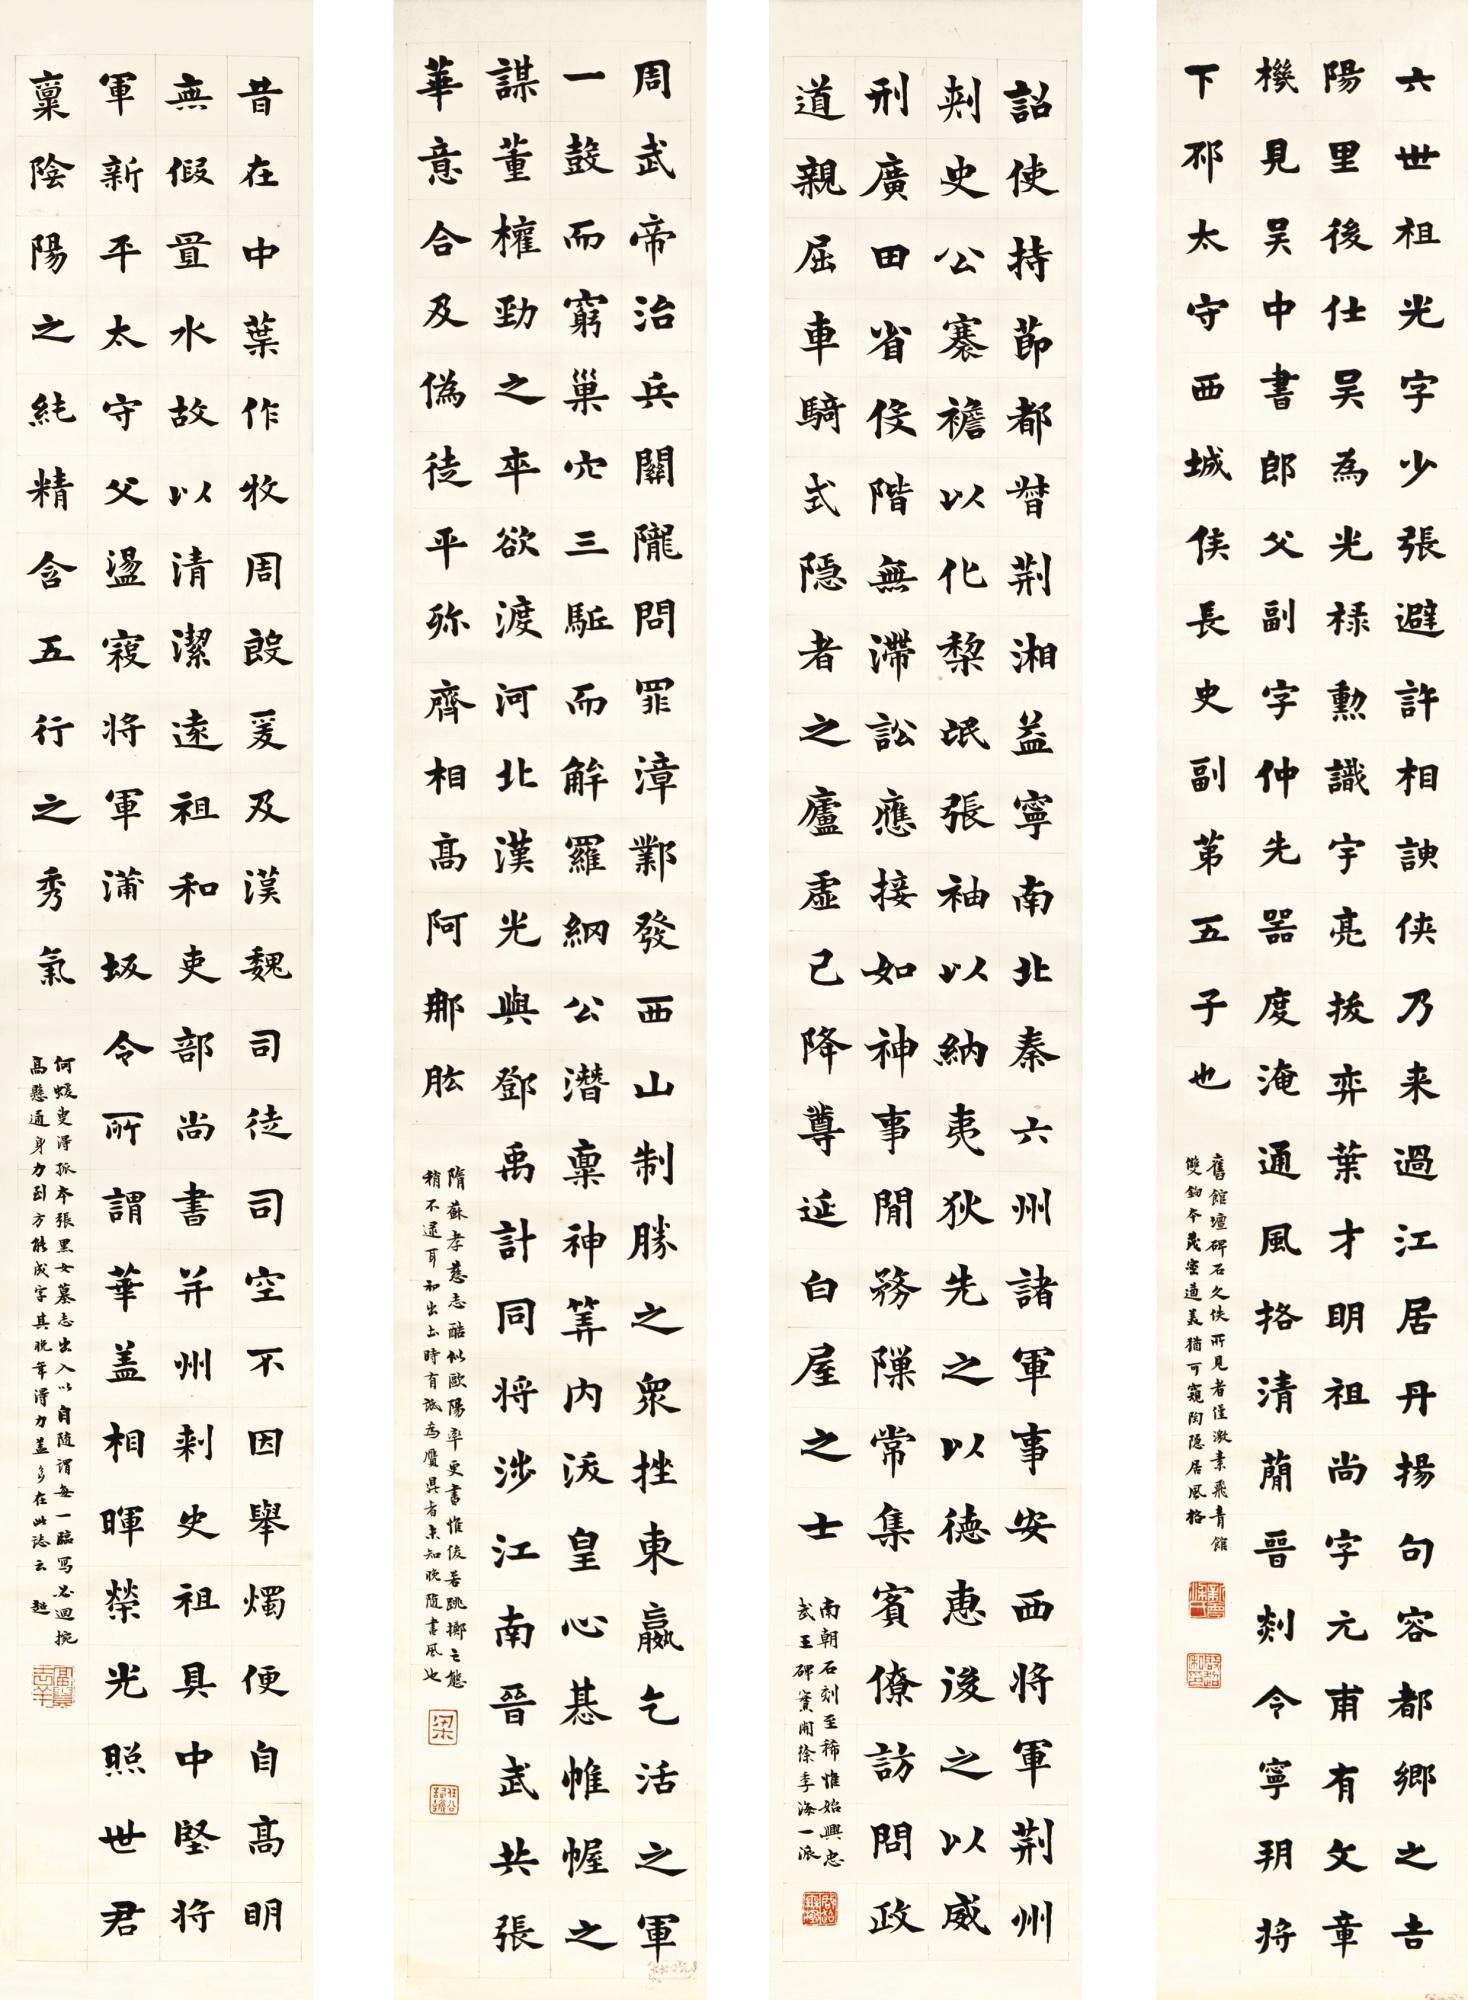 六世祖光字少張避許相諛俠乃来過江居丹揚句容都鄉之吉
陽里後仕吴為光禄勲識宇亮拔弈葉才明祖尚字元甫有文章
機見吴中書郎父副字仲先器度淹通風格清蕳晉剡令寧朔将
下邳太守西城侯長史副苐五子也
舊館壇碑石久佚所見者僅激素飛青館
雙鈎本茂密遒美猶可窺陶隐居風格
詔使持莭都督荆湘益寧南北秦六州諸軍事安西将軍荆州
刺史公褰襜以化棃氓張袖以納夷狄先之以德惠後之以威
刑廣田省伇階無滯訟應接如神事閒務隟常集賓僚訪問政
道親屈車騎式隠者之廬虚己降尊延白屋之士
南朝石刻至稀惟始興忠
武王碑實開徐季海一派
周武帝治兵關隴問罪漳鄴發西山制勝之衆挫東嬴乞活之軍
一鼓而窮巢穴三駈而解羅網公潛禀神筭内沃皇心惎帷幄之
謀董權勁之卒欲渡河北漢光與鄧禹計同将涉江南晉武共張
華意合及偽徒平弥齊相高阿那肱
隋蘇孝慈志酷似歐陽率更書惟俊若跳擲之態
稍不逮耳初出土時有詆為贋具者未知晚隨書風也
昔在中葉作牧周殷爰及漢魏司徒司空不因舉燭便自高明
無假置水故以清潔遠祖和吏部尚書并州刺史祖具中堅将
軍新平太守父盪寇将軍蒲坂令所謂華盖相暉榮光照世君
禀陰陽之純精含五行之秀氣
何蝯叟淂孤本張黑女墓志出入以自随謂每一臨寫必迴捥
高懸通身力到方能成字其晚年淂力盖多在此誌云 超